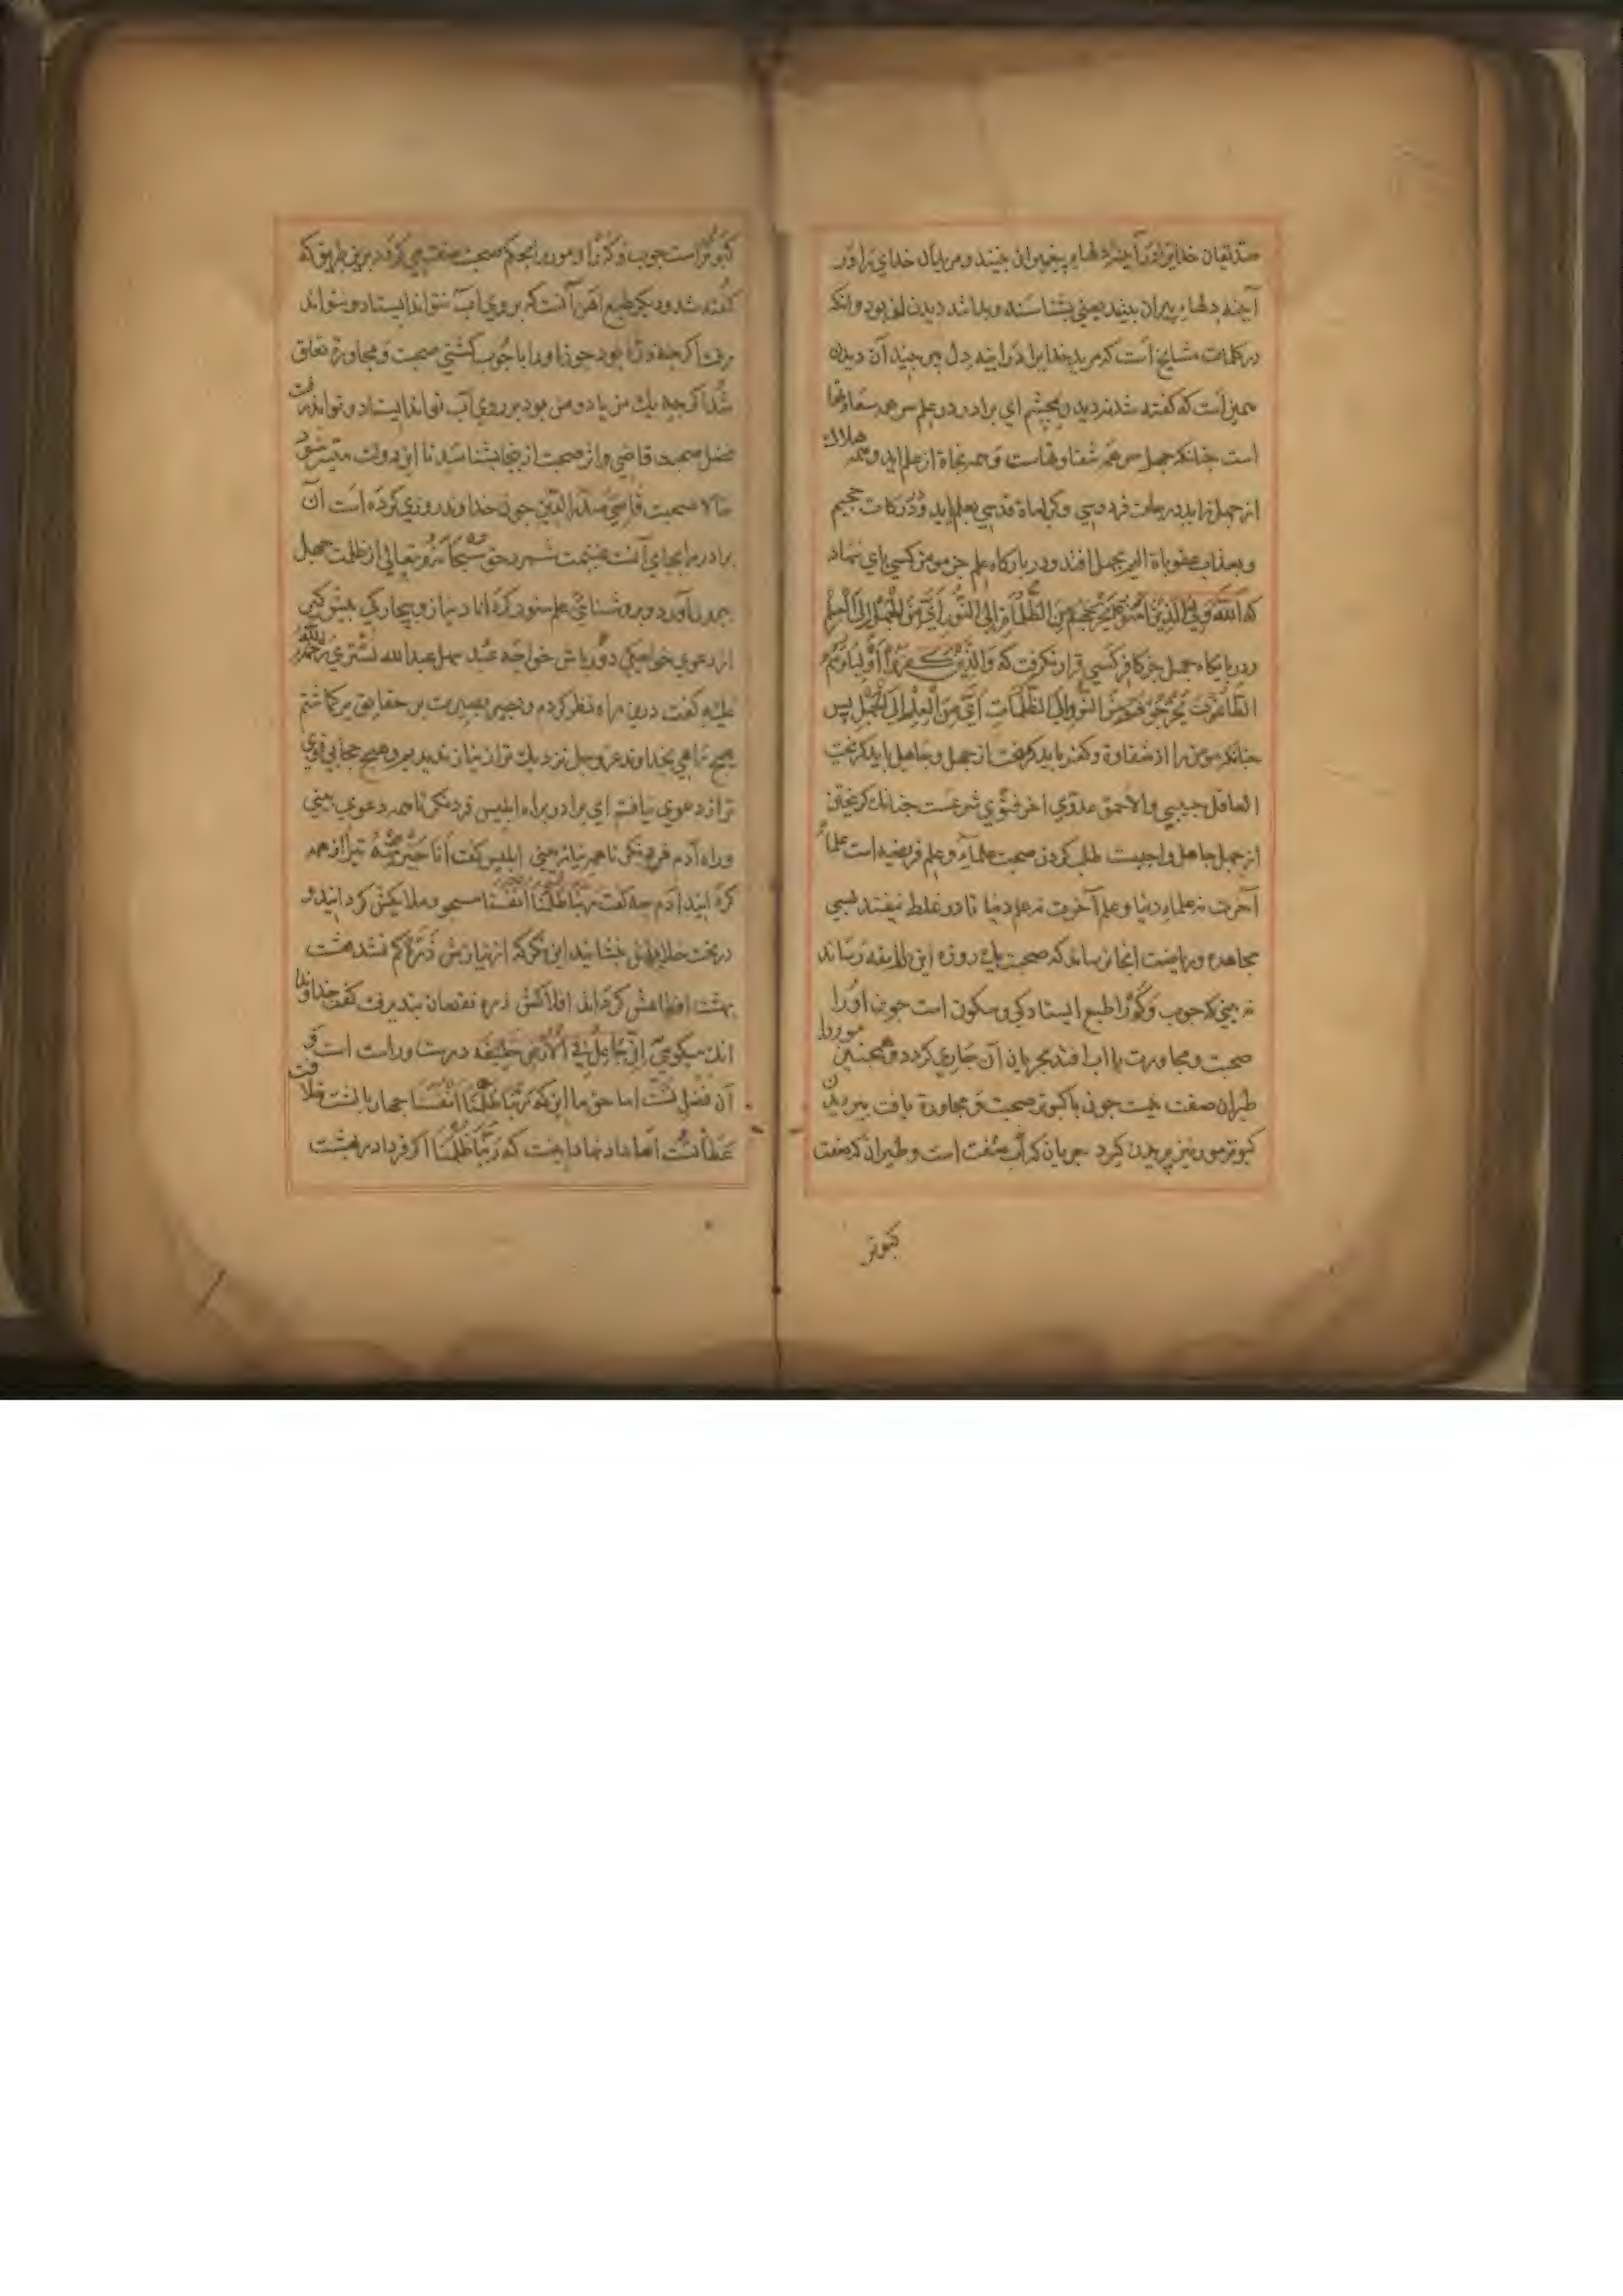 صدیقان خدایرا در آیینه دلهاء پیغمبران بینند و مریدان خدای را در
آیینه دلهاء پیران بینند یعنی بشناسند و بدانند دیدن این بود وانکه
در کلمات مشایخ است که مرید خدا یرا در آینه دل پیر بیند آن دیدن
همین است که گفته شد نه دیدن بچشم ای برادر در علم سر همه سعادتها
است چنانکه جهل سر همه شقاوتهاست و همه نجاة از علم اید و همه هلاك
از جهل زاید درجات فردوسی و کراماة قدسی بعلم اید و درکات جحیم
و بعذاب عقوباة الیم بجهل افتد و در بارکاه علم جز مومن کسی پای ننهاد
که اَللهُ وَلِيُّ الَّذِينَ آمَنُوا يُخْرِجُهُمْ مِنَ الظُّلُمَاتِ إِلَى النُّورِ أَيْ مِنَ الْجَهْلِ إِلَى الْعِلْمِ
و در پایکاه جهل جز کافر کسی قرار نکرفت که وَالَّذِينَ كَفَرُوا أَوْلِيَاؤُهُمُ
الطَّاغُوتُ يُخْرِجُونَهُمْ مِنَ النُّورِ إِلَى الظُّلُمَاتِ أَيْ مِنَ الْعِلْمِ إِلَى الْجَهْلِ پس
چنانکه مومن را از شقاوة و کفر باید کریخت از جهل و جاهل باید کریخت
العاقل حبیبي والاحمق عدوّي اخر فتوی شرعست چنانك کریختن
از جهل جاهل واجبست طلب کردن صحبت علماء و علم فریضه است علماء
آخرت نه علماء دنیا و علم آخرت نه علم دنیا تا در غلط نیفتد بسی
مجاهده و ریاضت انجا نرساند که صحبت یك روزه این طایفه رساند
نه بینی که چوب و کَرْ را طبع ایستادکی و سکون است چون اورا
صحبت و مجاورت با اب افتد بجریان آن جاری کردد و همچنین مور را
طیران صفت نیست چون با کبوتر صحبت و مجاورة یافت بپریدن
کبوتر مور نیز پریدن کیرد جریان که آب صفت است و طیران که صفت
کبوتر
کبوتر است چوب و کَرْ را و مور را بحکم صحبت صفت می کردد برین طریق که
گفته شد و دیگر طبع اهن آنست که بر روی آب نتواند ایستاد و نتواند
رفت اکرچه ذرّه بود چون او را با چوب کشتی صحبت و مجاورة تعلق
شد اکرچه یك من یا دو من بود بر روی آب تواند ایستاد و تواند رفت
فضل صحبت قاضی و اثر صحبت از ینجا بشناسند تا این دولت میسر شود
حالا صحبت قاضی صدرالدین چون خداوند روزی کرده است آن
برادر را بجای آنست غنیمت شمرد حق سُبْحَانَهُ وتعالی از ظلمت جهل
بیرون آورد و بروشنائی علم ستوده کرداناد نیاز و بیچارکی پیش کیر
از دعوی خواجکی دور باش خواجه سهل عبدالله تستری رحمة الله
علیه گفت درین راه نظر کردم و بصیر بصیرت بر حقایق برکماشتم
هیچ راهی بخداوند عز و جل نزدیك تر از نیاز ندیدم و هیچ حجابی قوی
تر از دعوی نیافتم ای برادر براه ابلیس فرونکر تا همه دعوی بینی
وراه آدم فرو نکر تا همه نیاز بینی ابلیس گفت اَنَا خَيْرٌ مِنْهُ تیرا از همه
کردانید آدم چه گفت رَبَّنَا ظَلَمْنَا أَنْفُسَنَا مسجود ملایکش کردانید و
در تخت خلافتش بنشانید این نکر که از نیازش ذرّه کم نشد هشت
بهشت اقطاعش کردند افلاکش ذره نقصان نپذیرفت گفت خداوندا
انك میکویی إِنِّي جَاعِلٌ فِي الْأَرْضِ خَلِيفَةً درست و راست است و
آن فضل تست اما حق ما این که رَبَّنَا ظَلَمْنَا أَنْفُسَنَا چهار بالشت خلافت
عطا تست اما داد نهاد ما اینست که رَبَّنَا ظَلَمْنَا اکر فردا در بهشت